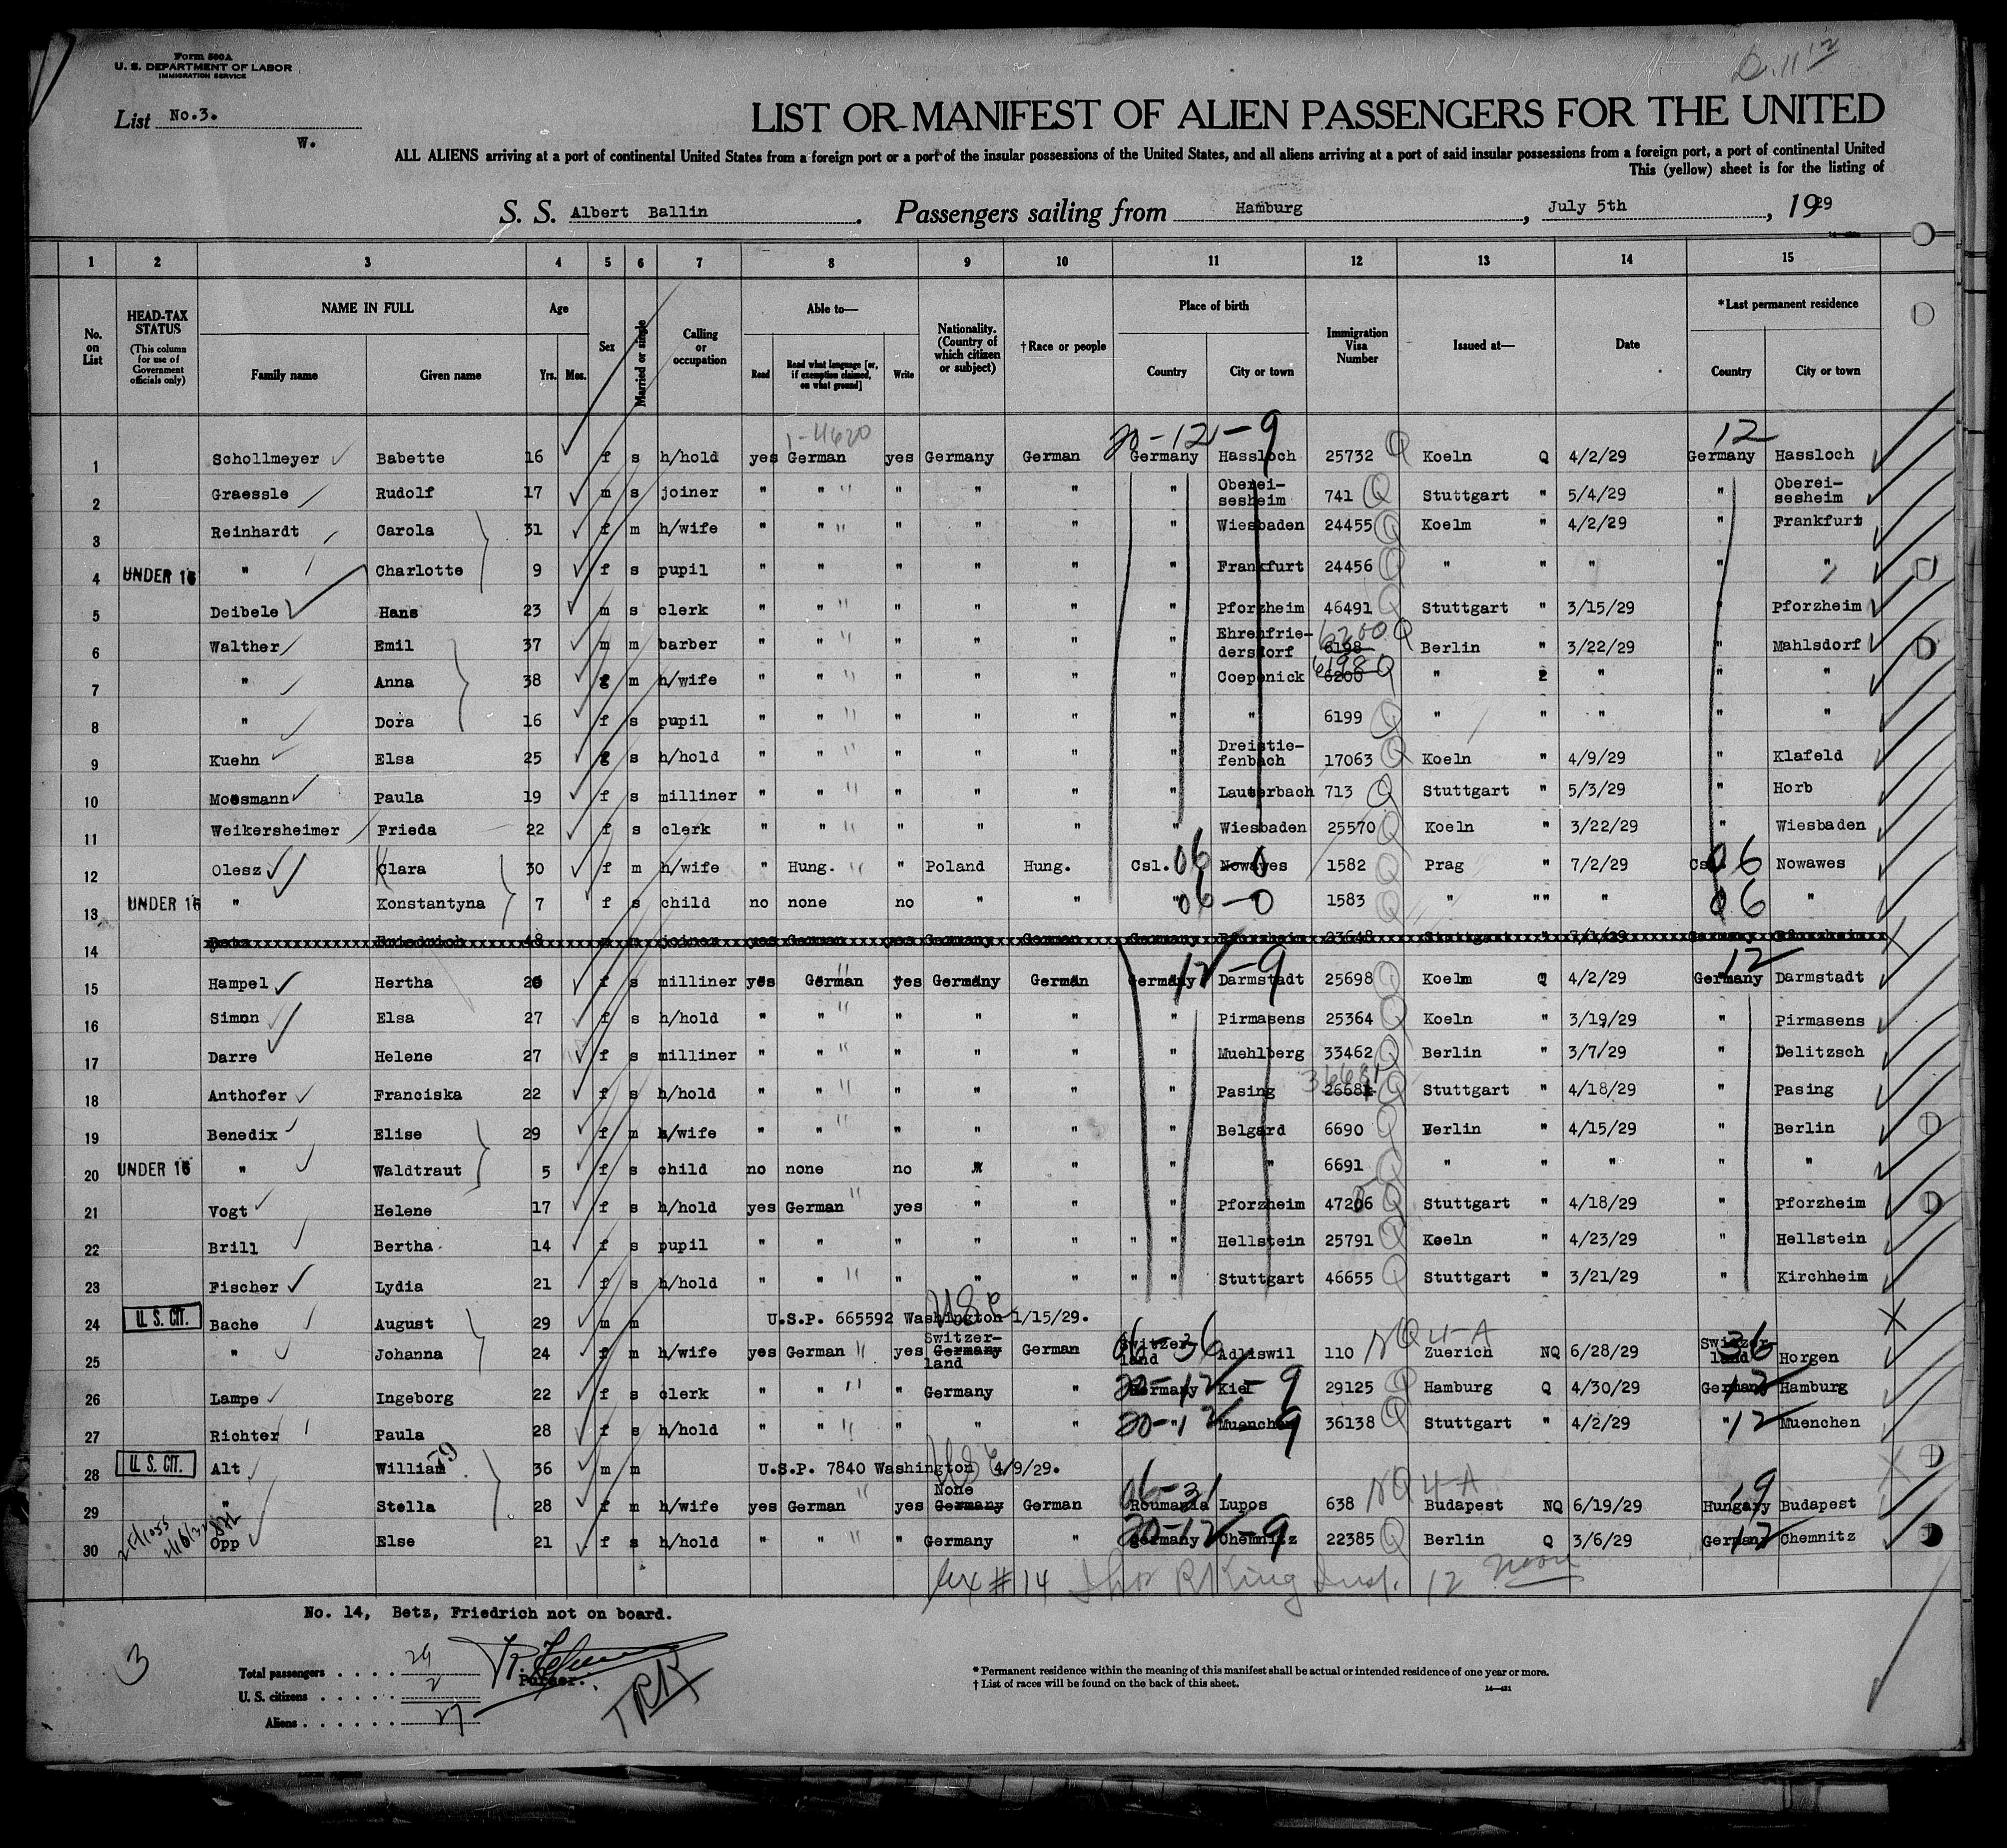 Form 500A
U. S. DEPARTMENT OF LABOR
IMMIGRATION SERVICE
List No.3.
W.
LIST OR MANIFEST OF ALIEN PASSENGERS FOR THE UNITED
ALL ALIENS arriving at a port of continental United States from a foreign port or a port of the insular possessions of the United States, and all aliens arriving at a port of said insular possessions from a foreign port, a port of continental United
This (yellow) sheet is for the listing of
S. S. Albert Ballin. Passengers sailing from Hamburg, July 5th, 1929
1 2 3 4 5 6 7 8 9 10 11 12 13 14 15
No. on List HEAD-TAX STATUS (This column for use of Government officials only) NAME IN FULL Family name Given name Age Yrs. Mos. Sex Married or single Calling or occupation Able to— Read Read what language [or, if exemption claimed, on what ground] Write Nationality. (Country of which citizen or subject) †Race or people Place of birth Country City or town Immigration Visa Number Issued at— Date *Last permanent residence Country City or town
1-4620 20-12-9 12
1 Schollmeyer Babette 16 f s h/hold yes German yes Germany German Germany Hassloch 25732 Q Koeln Q 4/2/29 Germany Hassloch
2 Graessle Rudolf 17 m s joiner " " " " " " Oberei-sesheim 741 Q Stuttgart " 5/4/29 " Oberei-sesheim
3 Reinhardt Carola 31 f m h/wife " " " " " " Wiesbaden 24455 Q Koelm " 4/2/29 " Frankfurt
4 UNDER 16 " Charlotte 9 f s pupil " " " " " " Frankfurt 24456 Q " " " " "
5 Deibele Hans 23 m s clerk " " " " " " Pforzheim 46491 Q Stuttgart " 3/15/29 " Pforzheim
6 Walther Emil 37 m m barber " " " " " " Ehrenfrie-dersdorf 6198 6200 Q Berlin " 3/22/29 " Mahlsdorf
7 " Anna 38 f m h/wife " " " " " " Coepenick 6200 6198 Q " " " " "
8 " Dora 16 f s pupil " " " " " " " 6199 Q " " " " "
9 Kuehn Elsa 25 f s h/hold " " " " " " Dreistie-fenbach 17063 Q Koeln " 4/9/29 " Klafeld
10 Mossmann Paula 19 f s milliner " " " " " " Lauterbach 713 Q Stuttgart " 5/3/29 " Horb
11 Weikersheimer Frieda 22 f s clerk " " " " " " Wiesbaden 25570 Q Koeln " 3/22/29 " Wiesbaden
12 Olesz Clara 30 f m h/wife " Hung. " Poland Hung. Csl. 06 Nowawes 0 1582 Q Prag " 7/2/29 Csl. 06 Nowawes
13 UNDER 16 " Konstantyna 7 f s child no none no " " " 06-0 1583 Q " "" " 06 "
14 Betz Friedrich 48 m m joiner yes German yes Germany German Germany Pforzheim 23648 Stuttgart " 7/1/29 Germany Pforzheim
12-9 12
15 Hampel Hertha 26 f s milliner yes German yes Germany German Germany Darmstadt 25698 Q Koelm Q 4/2/29 Germany Darmstadt
16 Simon Elsa 27 f s h/hold " " " " " " Pirmasens 25364 Q Koeln " 3/19/29 " Pirmasens
17 Darre Helene 27 f s milliner " " " " " " Muehlberg 33462 Q Berlin " 3/7/29 " Delitzsch
18 Anthofer Franciska 22 f s h/hold " " " " " " Pasing 26681 36681 Q Stuttgart " 4/18/29 " Pasing
19 Benedix Elise 29 f m h/wife " " " " " " Belgard 6690 Q Berlin " 4/15/29 " Berlin
20 UNDER 16 " Waldtraut 5 f s child no none no " " " " 6691 Q " " " " "
21 Vogt Helene 17 f s h/hold yes German yes " " " Pforzheim 47206 Q Stuttgart " 4/18/29 " Pforzheim
22 Brill Bertha 14 f s pupil " " " " " " " Hellstein 25791 Q Koeln " 4/23/29 " Hellstein
23 Fischer Lydia 21 f s h/hold " " " " " " " Stuttgart 46655 Q Stuttgart " 3/21/29 " Kirchheim
24 U. S. CIT. Bache August 29 m m U.S.P. 665592 Washington 1/15/29. USC
25 " Johanna 24 f m h/wife yes German yes Germany Switzer-land German Switzer-land 06-36 Adliswil 110 NQ 4-A Zuerich NQ 6/28/29 Switzer-land 36 Horgen
26 Lampe Ingeborg 22 f s clerk " " " Germany " Germany 20-12-9 Kiel 29125 Q Hamburg Q 4/30/29 Germany 12 Hamburg
27 Richter Paula 28 f s h/hold " " " " " " 20-12 9 Muenchen 36138 Q Stuttgart " 4/2/29 " 12 Muenchen
28 U. S. CIT. Alt William 36 m m U.S.P. 7840 Washington 4/9/29. USC
29 " Stella 28 f m h/wife yes German yes Germany None German Roumania 06-31 Lupos 638 NQ 4-A Budapest NQ 6/19/29 Hungary 19 Budapest
30 Opp Else 21 f s h/hold " " " Germany " Germany 20-12-9 Chemnitz 22385 Q Berlin Q 3/6/29 Germany 12 Chemnitz
ex #14 Thos R King Insp. 12 noon
No. 14, Betz, Friedrich not on board.
3
Total passengers . . . . 29
Purser.
U. S. citizens . . . . . 2
Aliens . . . . . . 27
TRK
* Permanent residence within the meaning of this manifest shall be actual or intended residence of one year or more.
† List of races will be found on the back of this sheet.